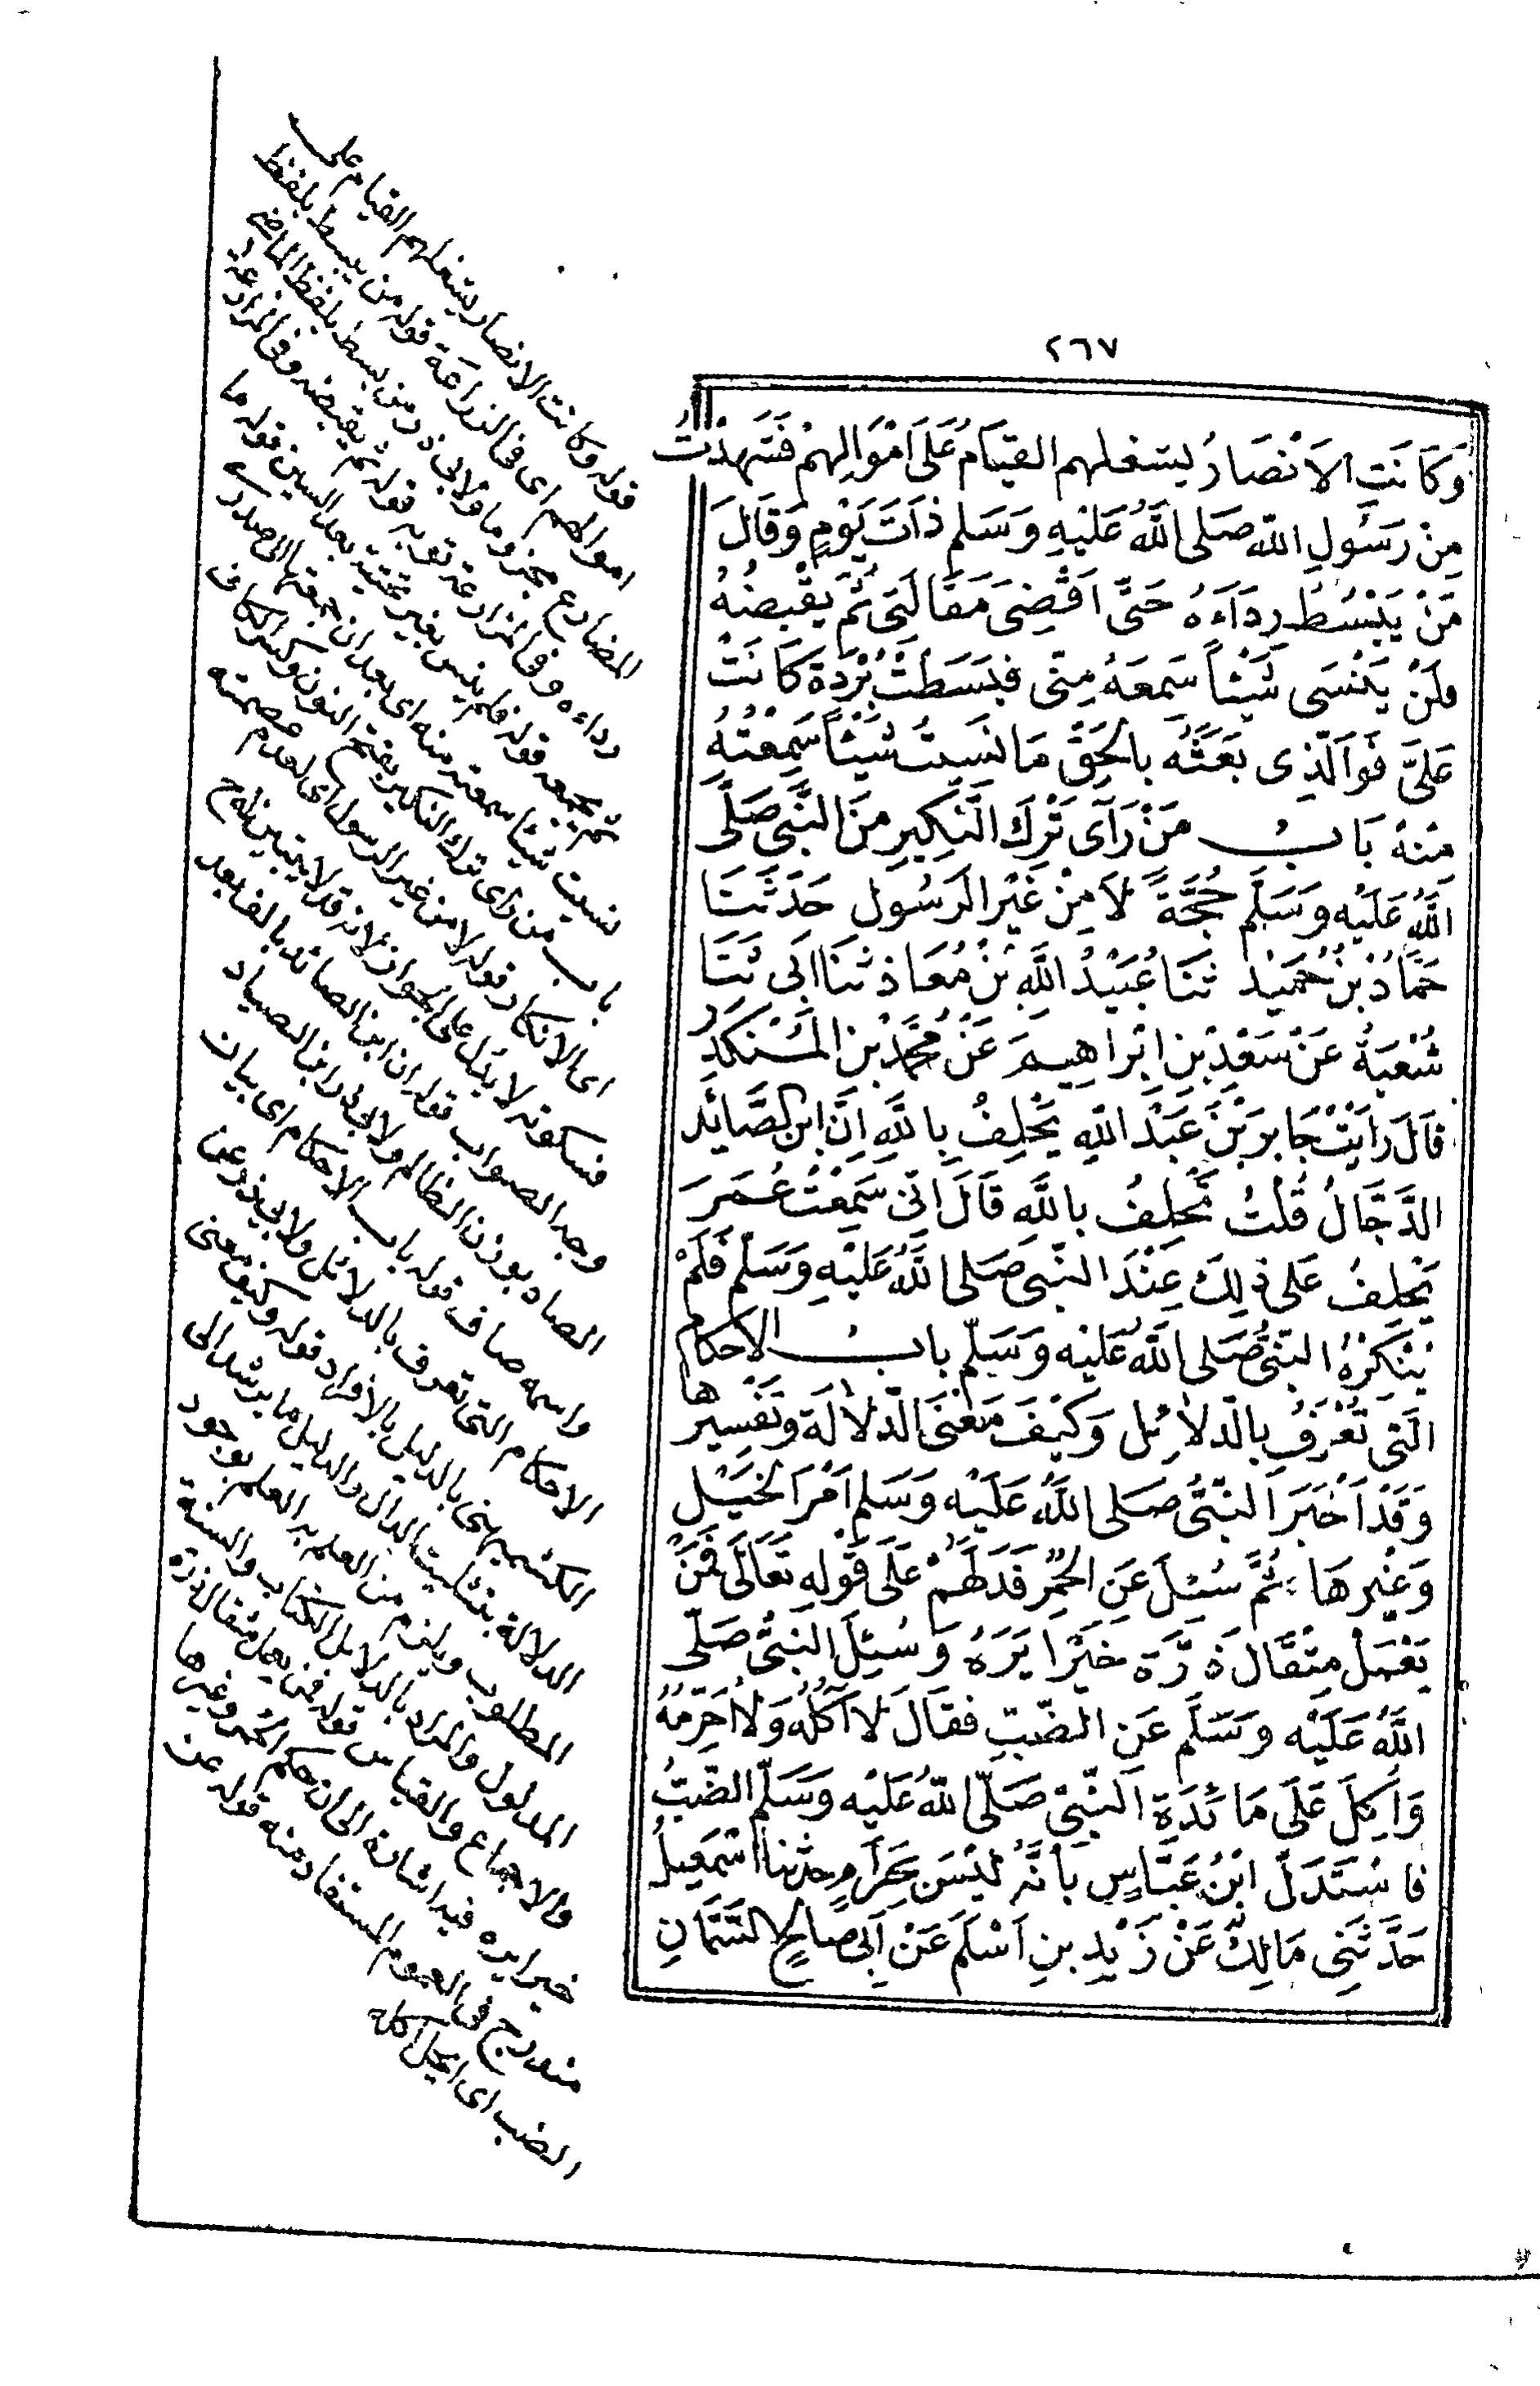 ٢٦٧
وَكَانَتِ الاَنْصَارُ يشغلهم القيَامُ عَلَى اَمْوَالِهِمْ فَشَهِدْتُ
مِنْ رَسَولِ اللّٰه صَلى اللّٰهُ عَلَيْهِ وَسَلم ذَاتَ يَوْمٍ وَقَالَ
مَنْ يَبْسُطْ رِدَاءَهُ حَتَّى اَقْضِىَ مَقَالَتِى ثُمَّ يَقْبِضْهُ
فلَنْ يَنْسَى شَيْئاً سَمِعَهُ مِنّى فبَسَطْتُ بُرْدَةً كَانَتْ
عَلَىَّ فَوَالَّذِى بَعَثَهُ بالحَقِّ مَا نَسِيتُ شَيْئاً سَمِعْتُهُ
مِنْهُ بَابُ مَنْ رَآى تَرْكَ النَّكِيرِ مِنَ النَّبِى صَلَّى
اللّٰهُ عَلَيْه وَسَلَّم حُجَّةً لاَ مِنْ غَيْرِ الرَسُول حَدَّثَنَا
حَمَّادُ بْنُ حُمَيْد ثنَا عُبَيْدُ اللّٰهِ بْنُ مُعَاذ ثنَا اَبِى ثنَا
شُعْبَةُ عَنْ سَعْدِ بْنِ اِبْرَاهِيمَ عَنْ مُحَمَّدِ بْنِ المُنْكَدِرِ
قالَ رَاَيْتُ جَابِرَ بْنَ عَبْدِ اللّٰهِ يَحْلِفُ بِاللّٰهِ اِنَّ ابْنَ الصَّائِد
الدَّجَّالُ قُلْتُ تَحْلِفُ بِاللّٰهِ قَالَ اِنِّى سَمِعْتُ عُمَرَ
يَحْلِفُ عَلى ذٰلِكَ عِنْدَ النَّبِى صَلى اللّٰهُ عَلَيْهِ وَسَلَّم فَلَمْ
يُنْكِرْهُ النَّبِىُّ صَلى اللّٰهُ عَلَيْه وَسَلَّم بابُ الاَحْكَام
الَّتِى تُعْرَفُ بِالدَّلاَئِل وَكَيْفَ مَعْنَى الدّلاَلَة وَتَفْسِيرهَا
وَقَدْ اَخْبَرَ النَّبِىُّ صَلى اللّٰهُ عَلَيْه وَسَلم اَمْرَ الخَيْل
وَغَيْرهَا ثُمَّ سُئِلَ عَنِ الحُمُرِ فَدَلَّهُمْ عَلَى قَوْلِهِ تَعَالَى فَمَنْ
يَعْمَلْ مِثْقَالَ ذَرَّة خَيْرًا يَرَهُ وَسُئِلَ النَّبِىُّ صَلّى
اللّٰهُ عَلَيْه وَسَلَّم عَنِ الضَّبِّ فقَالَ لاَ آكُلُهُ وَلاَ اُحَرِّمُهُ
وَاُكِلَ عَلَى مَائِدَةِ النَّبِىّ صَلّى اللّٰهُ عَلَيْه وَسَلّم الضَّبُّ
فَاسْتَدَلَّ ابْنُ عَبَّاسٍ بَاَنَّهُ لَيْسَ بِحَرَامٍ حدثنا اِسْمَعِيلُ
حَدَّثَنِى مَالِكٌ عَنْ زَيْدِ بنِ اَسْلَمَ عَنْ اَبِى صَالِحٍ السَّمَّانِ
قوله وكانت الانصار يشغلهم القيام على
اموالهم اى فى الزراعة قوله من يبسط بلفظ
المضارع مجزوما ولابى ذر من بسط بلفظ الماضى
رداءه وفى المزارعة ثوبه قوله ثم يقبضه وفى المزارعة
ثم يجمعه قوله فلم ينس بغير تحتية بعد السين قوله ما
نسيت شيئا سمعته منه اى بعد ان جمعتها الى صدرى
باب من رأى ترك النكير بفتح النون وكسر الكاف
اى الانكار قوله لا من غير الرسول اى لعدم عصمته
فسكوته لا يدل على الجواز لانه قد لا يتبين له ح
وجه الصواب قوله ان ابن الصائد بالف بعد
الصاد بوزن الظالم ولابى ذر ابن الصياد
واسمه صاف قوله باب الاحكام اى بيان
الاحكام التى تعرف بالدلائل ولابى ذر عن
الكشميهنى بالدليل بالافراد قوله وكيف معنى
الدلالة بتثليث الدال والدليل ما يرشد الى
المطلوب ويلزم من العلم به العلم بوجود
المدلول والمراد بالدلائل الكتاب والسنة
والاجماع والقياس قوله فمن يعمل مثقال ذرة
خيرا يره فيه اشارة الى ان حكم الحمر وغيرها
مندرج فى العموم المستفاد منه قوله عن
الضب اى ايحل اكله